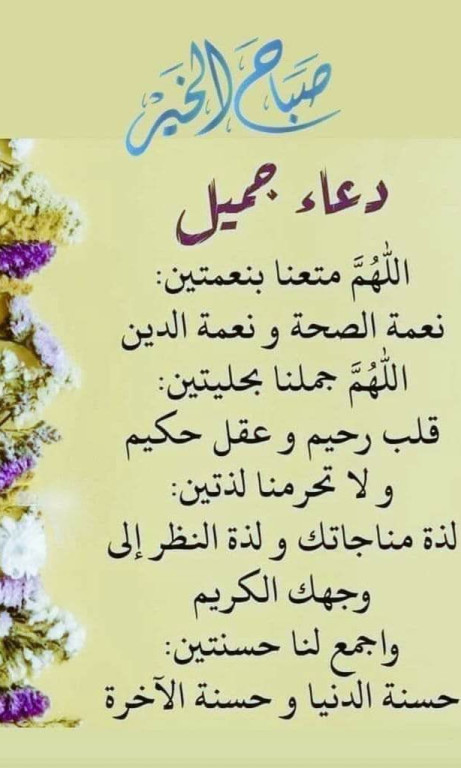 صَبَاحُ الخَيْر
دعاء جميل
اللَّهُمَّ متعنا بنعمتين:
نعمة الصحة و نعمة الدين
اللَّهُمَّ جملنا بحليتين:
قلب رحيم و عقل حكيم
و لا تحرمنا لذتين:
لذة مناجاتك و لذة النظر إلى
وجهك الكريم
واجمع لنا حسنتين:
حسنة الدنيا و حسنة الآخرة